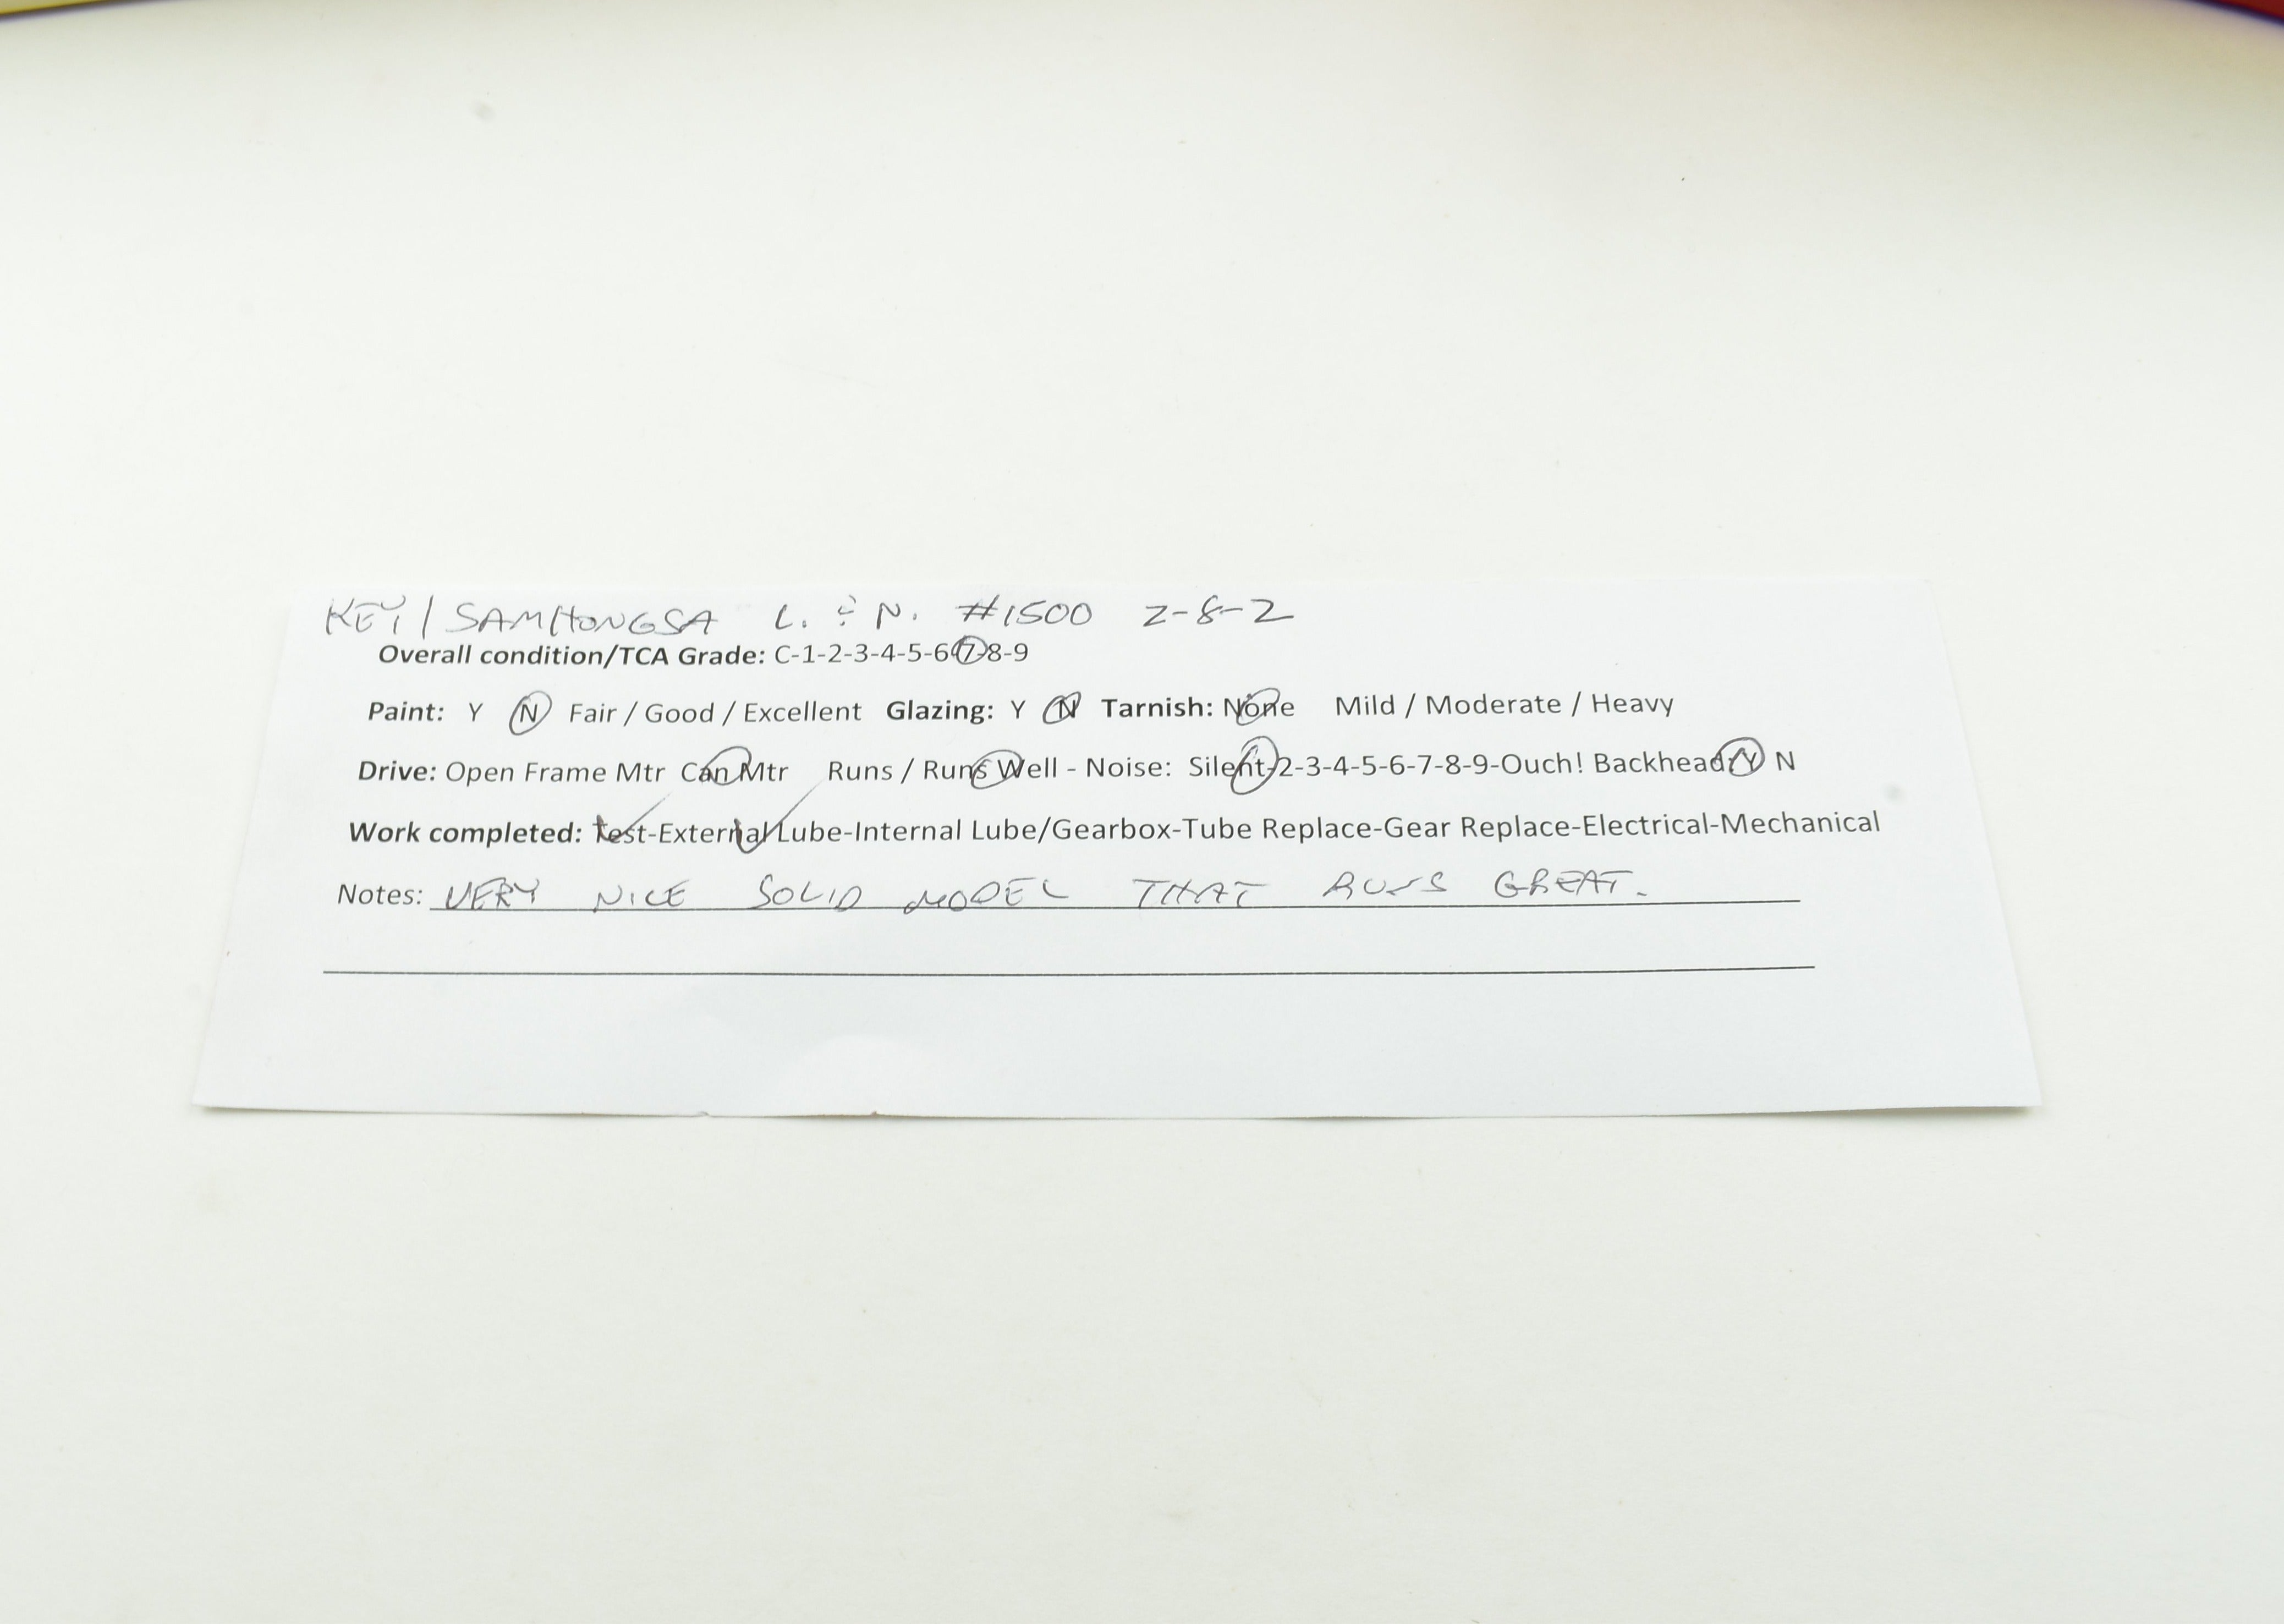 KEY/SAMHONGSA L. & N. #1500 2-8-2
Overall condition/TCA Grade: C-1-2-3-4-5-6-7-8-9
Paint: Y N Fair / Good / Excellent Glazing: Y N Tarnish: None Mild / Moderate / Heavy
Drive: Open Frame Mtr Can Mtr Runs / Runs Well - Noise: Silent-2-3-4-5-6-7-8-9-Ouch! Backhead: Y N
Work completed: Test-External Lube-Internal Lube/Gearbox-Tube Replace-Gear Replace-Electrical-Mechanical
Notes: VERY NICE SOLID MODEL THAT RUNS GREAT.